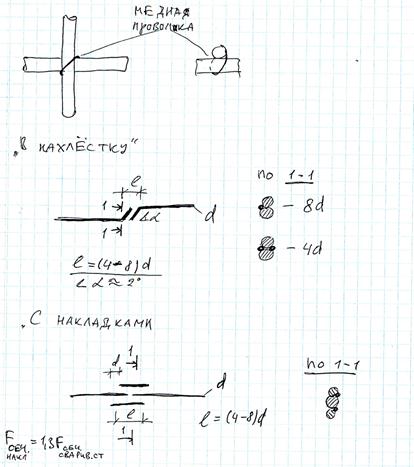 МЕДНАЯ
ПРОВОЛКА
„В НАХЛЁСТКУ"
l
1
1
∠α
d
l=(4-8)d
∠α≈2°
по 1-1
- 8d
- 4d
„С НАКЛАДКАМИ
d
1
d
l
1
l=(4-8)d
по 1-1
Fсеч. накл. =1,3Fсеч. сварив.ст